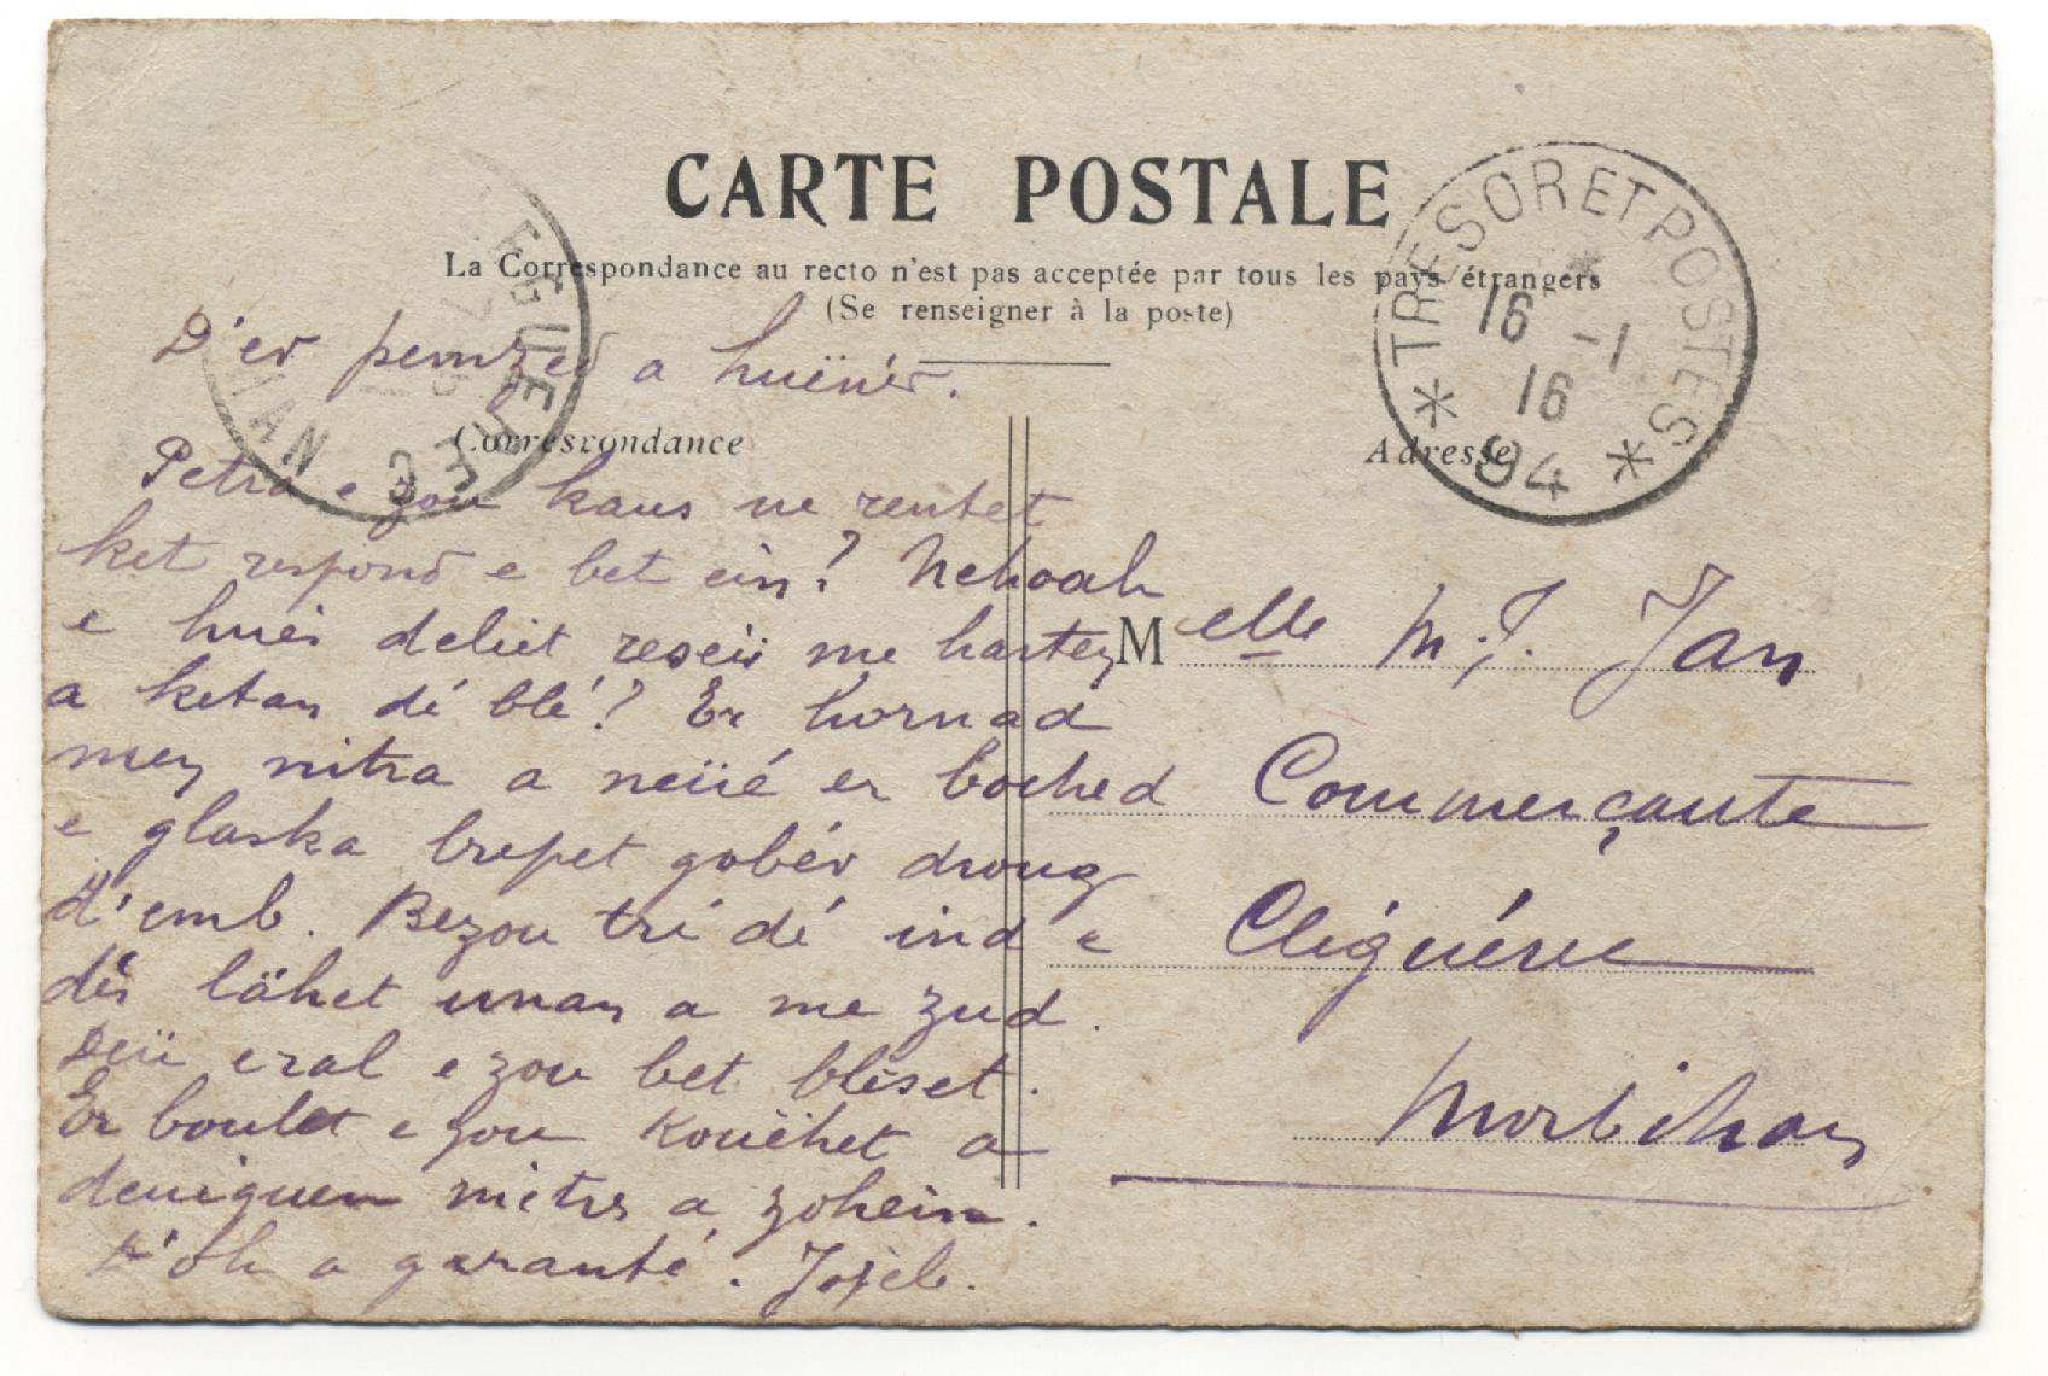 CARTE POSTALE
La Correspondance au recto n'est pas acceptée par tous les pays étrangers
(Se renseigner à la poste)
TRESOR ET POSTES
16 -1
16
94
D'er pemzed a huënér.
Correspondance
Adresse
Petra e zou kaus ne rentet
ket respond e bet ein? Nehoah
e hués deliét reseü me harten
a ketan dé blé? Er hornad
men nitra a neüé er boched
e glaska brepet gobér droug
d'emb. Bezou tri dé ind e
dès låhet unan a me zud.
Deü eral e zou bet bléset.
Er boulet e zou kouéhet a
deuiguen mètrs a zohein.
D'oh a garanté. Jojeb.
Melle M. J. Jan
Commerçante
Cléguérec
Morbihan